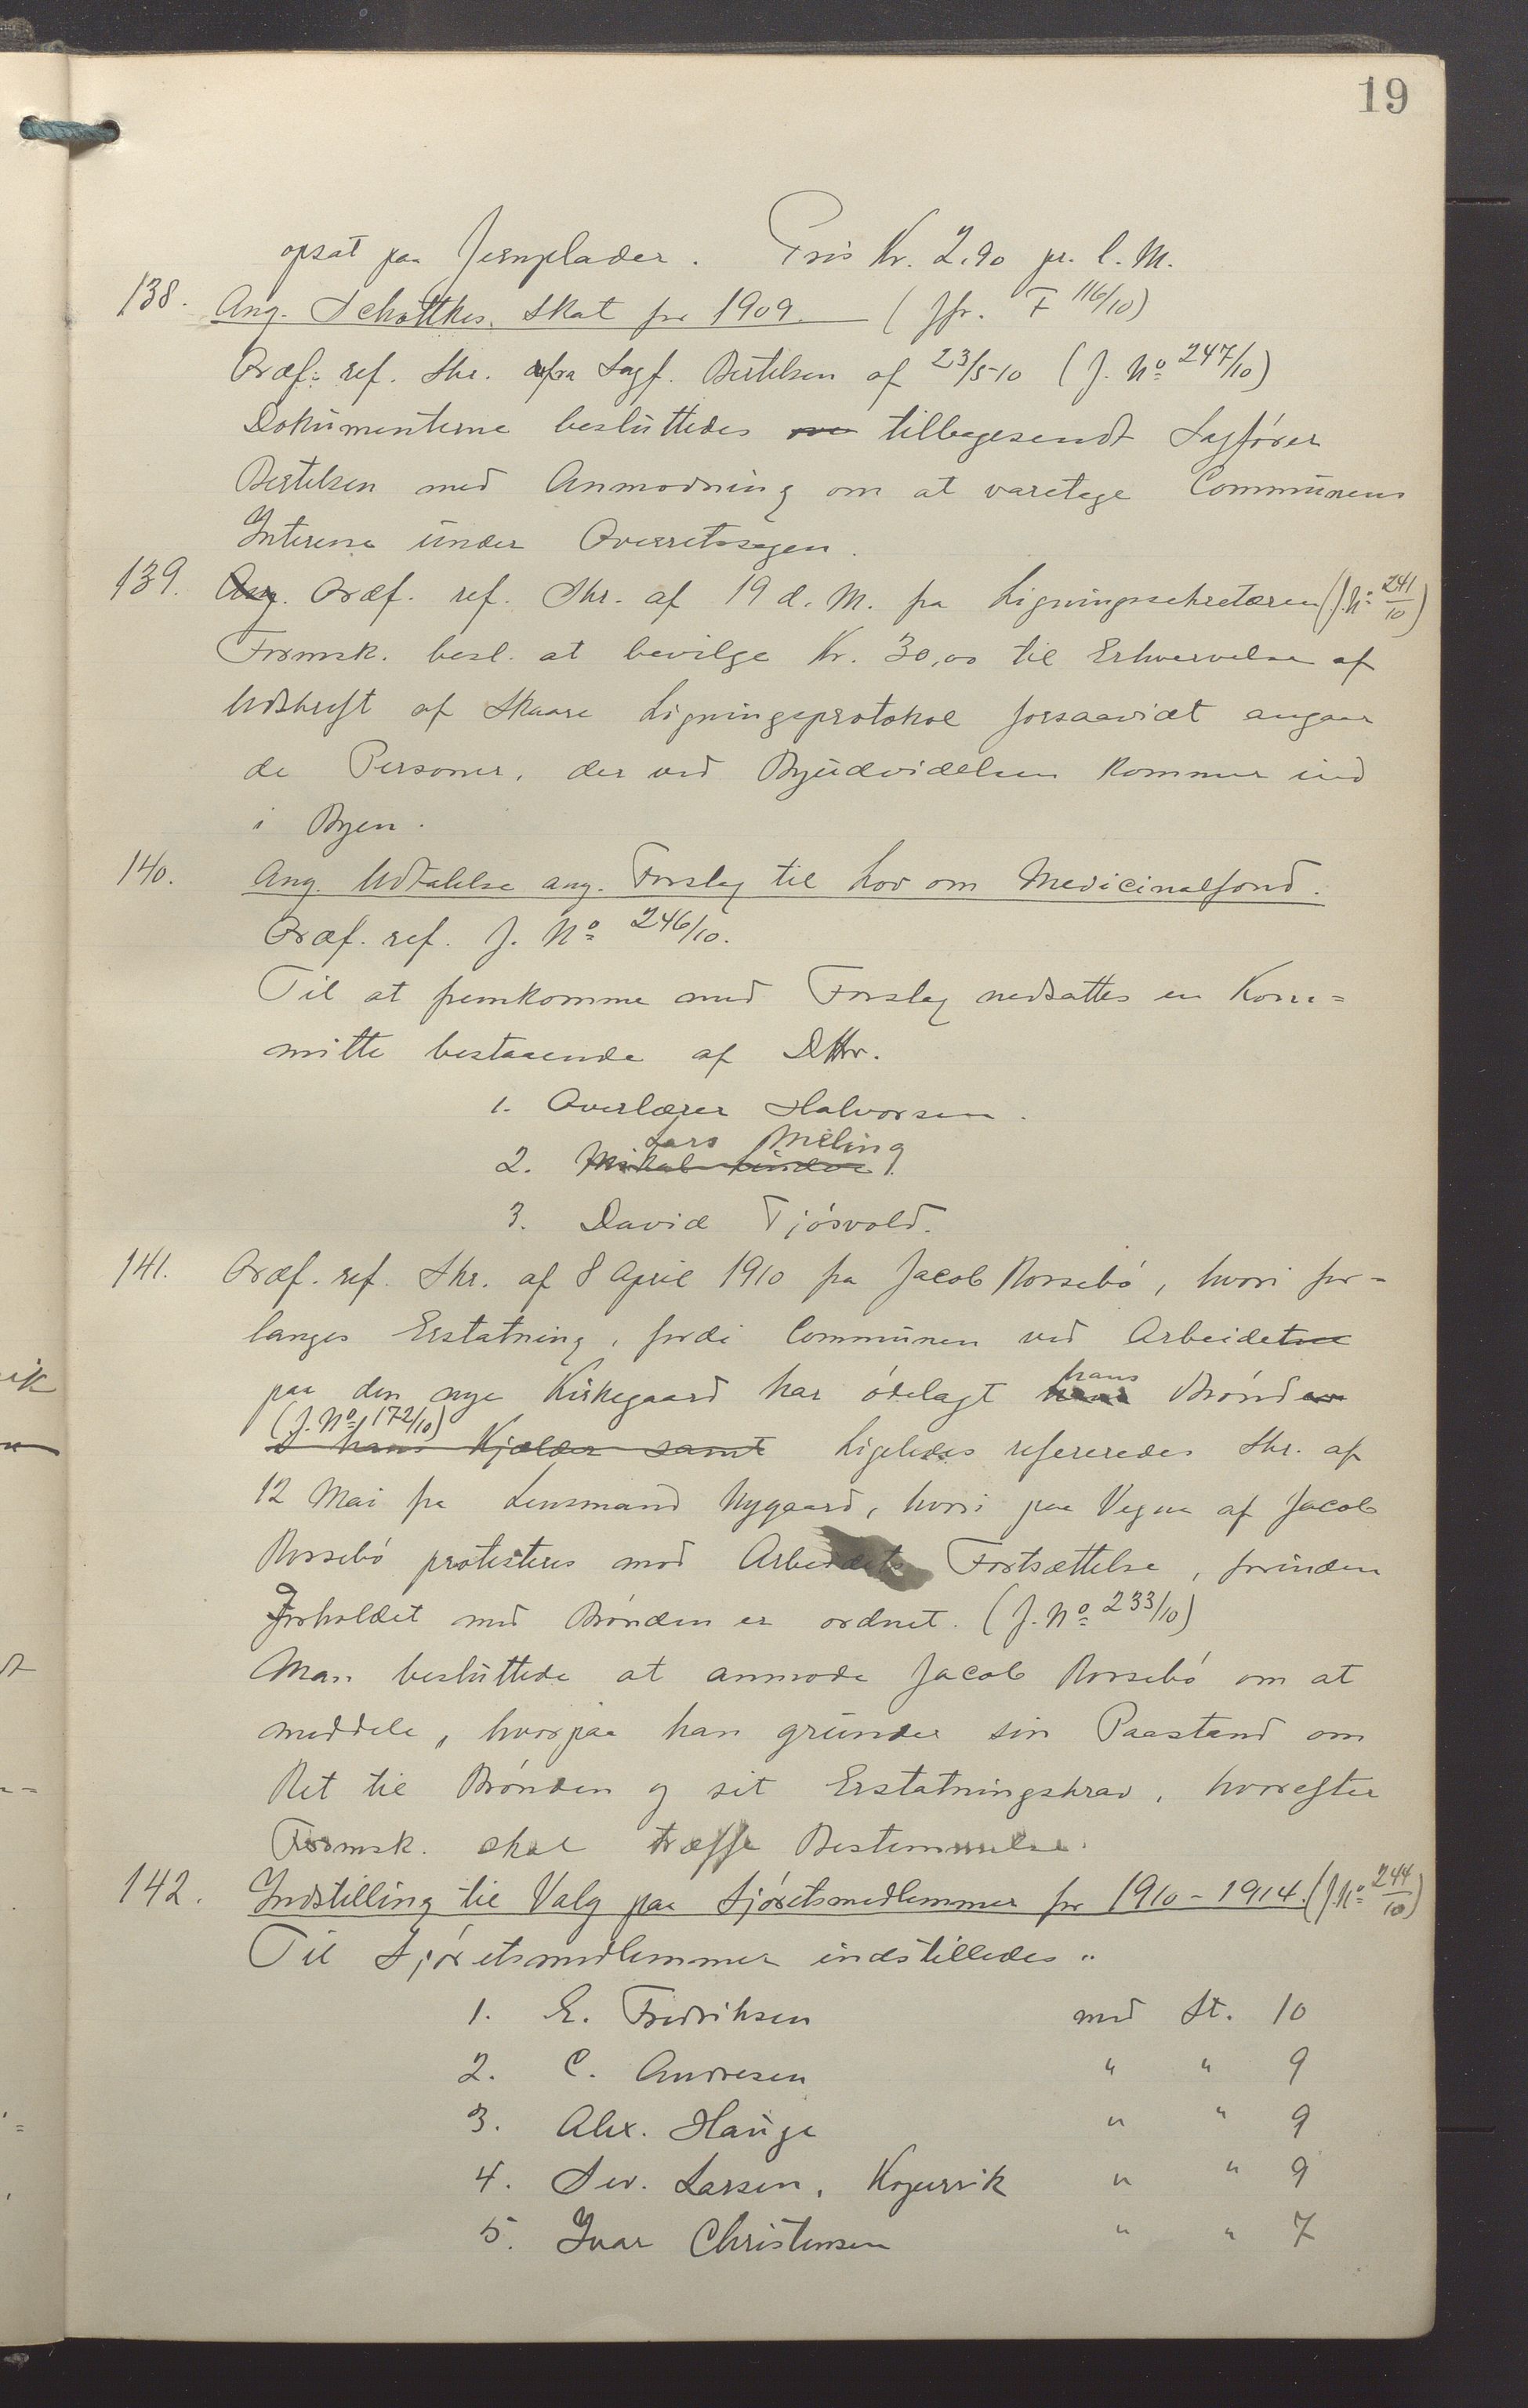 19
opsat paa Jernplader. Pris Kr. 2,90 pr. l. M.
138. Ang. Schøttkes Skat for 1909. (Jfr. F 116/10)
Ordf. ref. Skr. fra Sagf. Bertelsen af 23/5-10 (J. No 247/10)
Dokumenterne besluttedes tilbagesendt Sagfører
Bertelsen med Anmodning om at varetage Communens
Interesse under Overretssagen.
139. Ang. Ordf. ref. Skr. af 19 d. M. fra Ligningssekretæren (J. No 241/10)
Formsk. besl. at bevilge Kr. 30,00 til Erhvervelse af
Udskrift af Skaare Ligningsprotokol forsaavidt angaar
de Personer, der ved Byudvidelsen kommer ind
i Byen.
140. Ang. Udtalelse ang. Forslag til Lov om Medicinalfond.
Ordf. ref. J. No 246/10.
Til at fremkomme med Forslag nedsattes en Kom=
mitte bestaaende af DHrr.
1. Overlærer Halvorsen.
Lars Meling
2.
3. David Tjøsvold.
141. Ordf. ref. Skr. af 8 April 1910 fra Jacob Rossebø, hvori for=
langes Erstatning, fordi Communen ved Arbeidet
hans
paa den nye Kirkegaard har ødelagt Brønd
(J. No 172/10)
i hans Kjælder samt Ligeledes refereredes Skr. af
12 Mai fra Lensmand Nygaard, hvori paa Vegne af Jacob
Rossebø protesteres mod Arbeidets Fortsættelse, forinden
Forholdet med Brønden er ordnet. (J. No 233/10)
Man besluttede at anmode Jacob Rossebø om at
meddele, hvorpaa han grunder sin Paastand om
Ret til Brønden og sit Erstatningskrav, hvorefter
Formsk. skal træffe Bestemmelse.
142. Indstilling til Valg paa Sjøretsmedlemmer for 1910-1914. (J. No 244/10)
Til Sjøretsmedlemmer indstilledes:
1. E. Fredriksen med St. 10
2. C. Andresen " " 9
3. Alex. Hauge " " 9
4. Sev. Larsen, Kopervik " " 9
5. Ivar Christensen " " 7